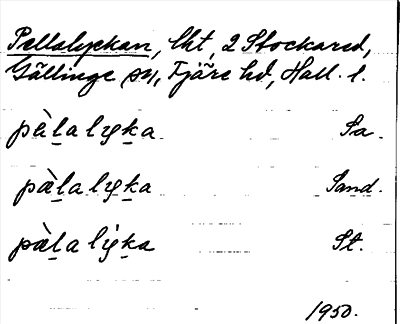 Pellalyckan, lht, 2 Stockared,
Gällinge sn, Fjäre hd, Hall. l.
pàl̠a lyk̠a Sa.
pæ̀l̠a lyk̠a Sand.
pæ̀l̠a lyk̠a St.
1950.